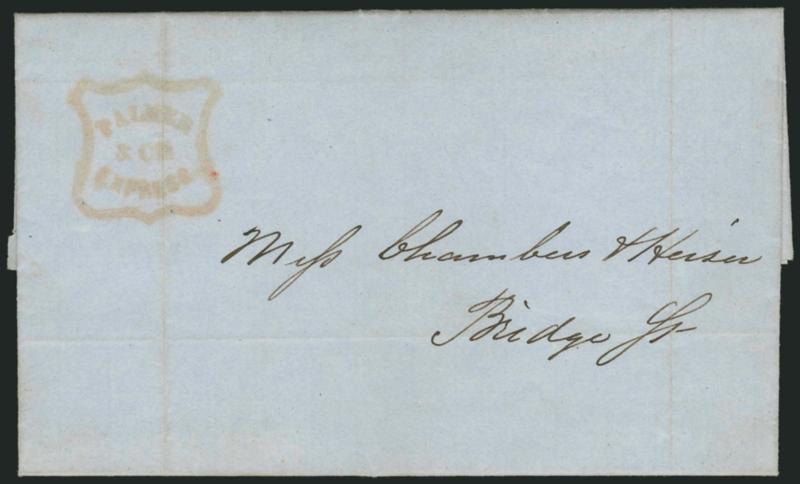 PALMER
& CO.
EXPRESS
Mess Chambers & Heiser
Bridge St